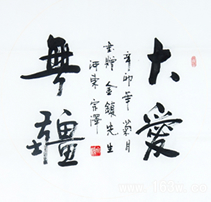 大愛
無疆
辛卯年菊月
書贈金鎖先生
河東宗澤